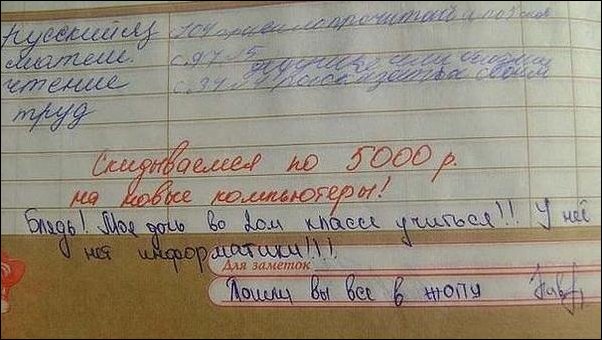 Русский яз
матем. с.97 №5
чтение с.94
труд
Скидываемся по 5000 р.
на новые компьютеры!
Блядь! Моя дочь во 2ом классе учиться!!! У неё
нет информатики!!!!
Для заметок
Пошли вы все в жопу